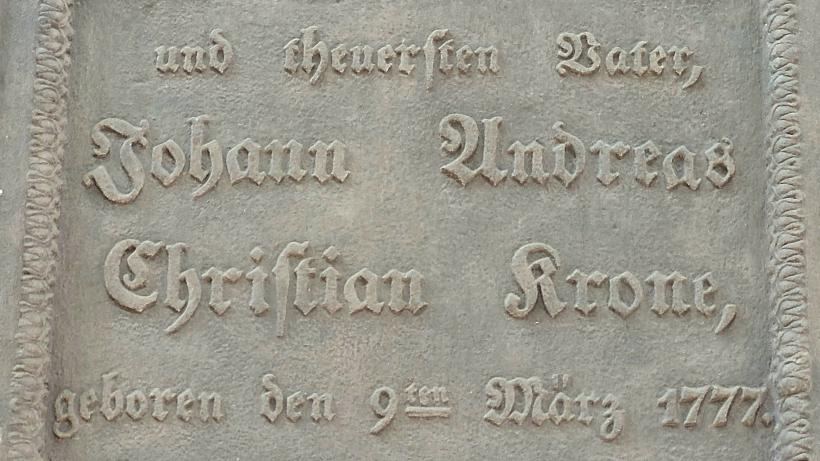 und theuerſten Vater,
Johann Andreas
Chriſtian Krone,
geboren den 9ten März 1777.